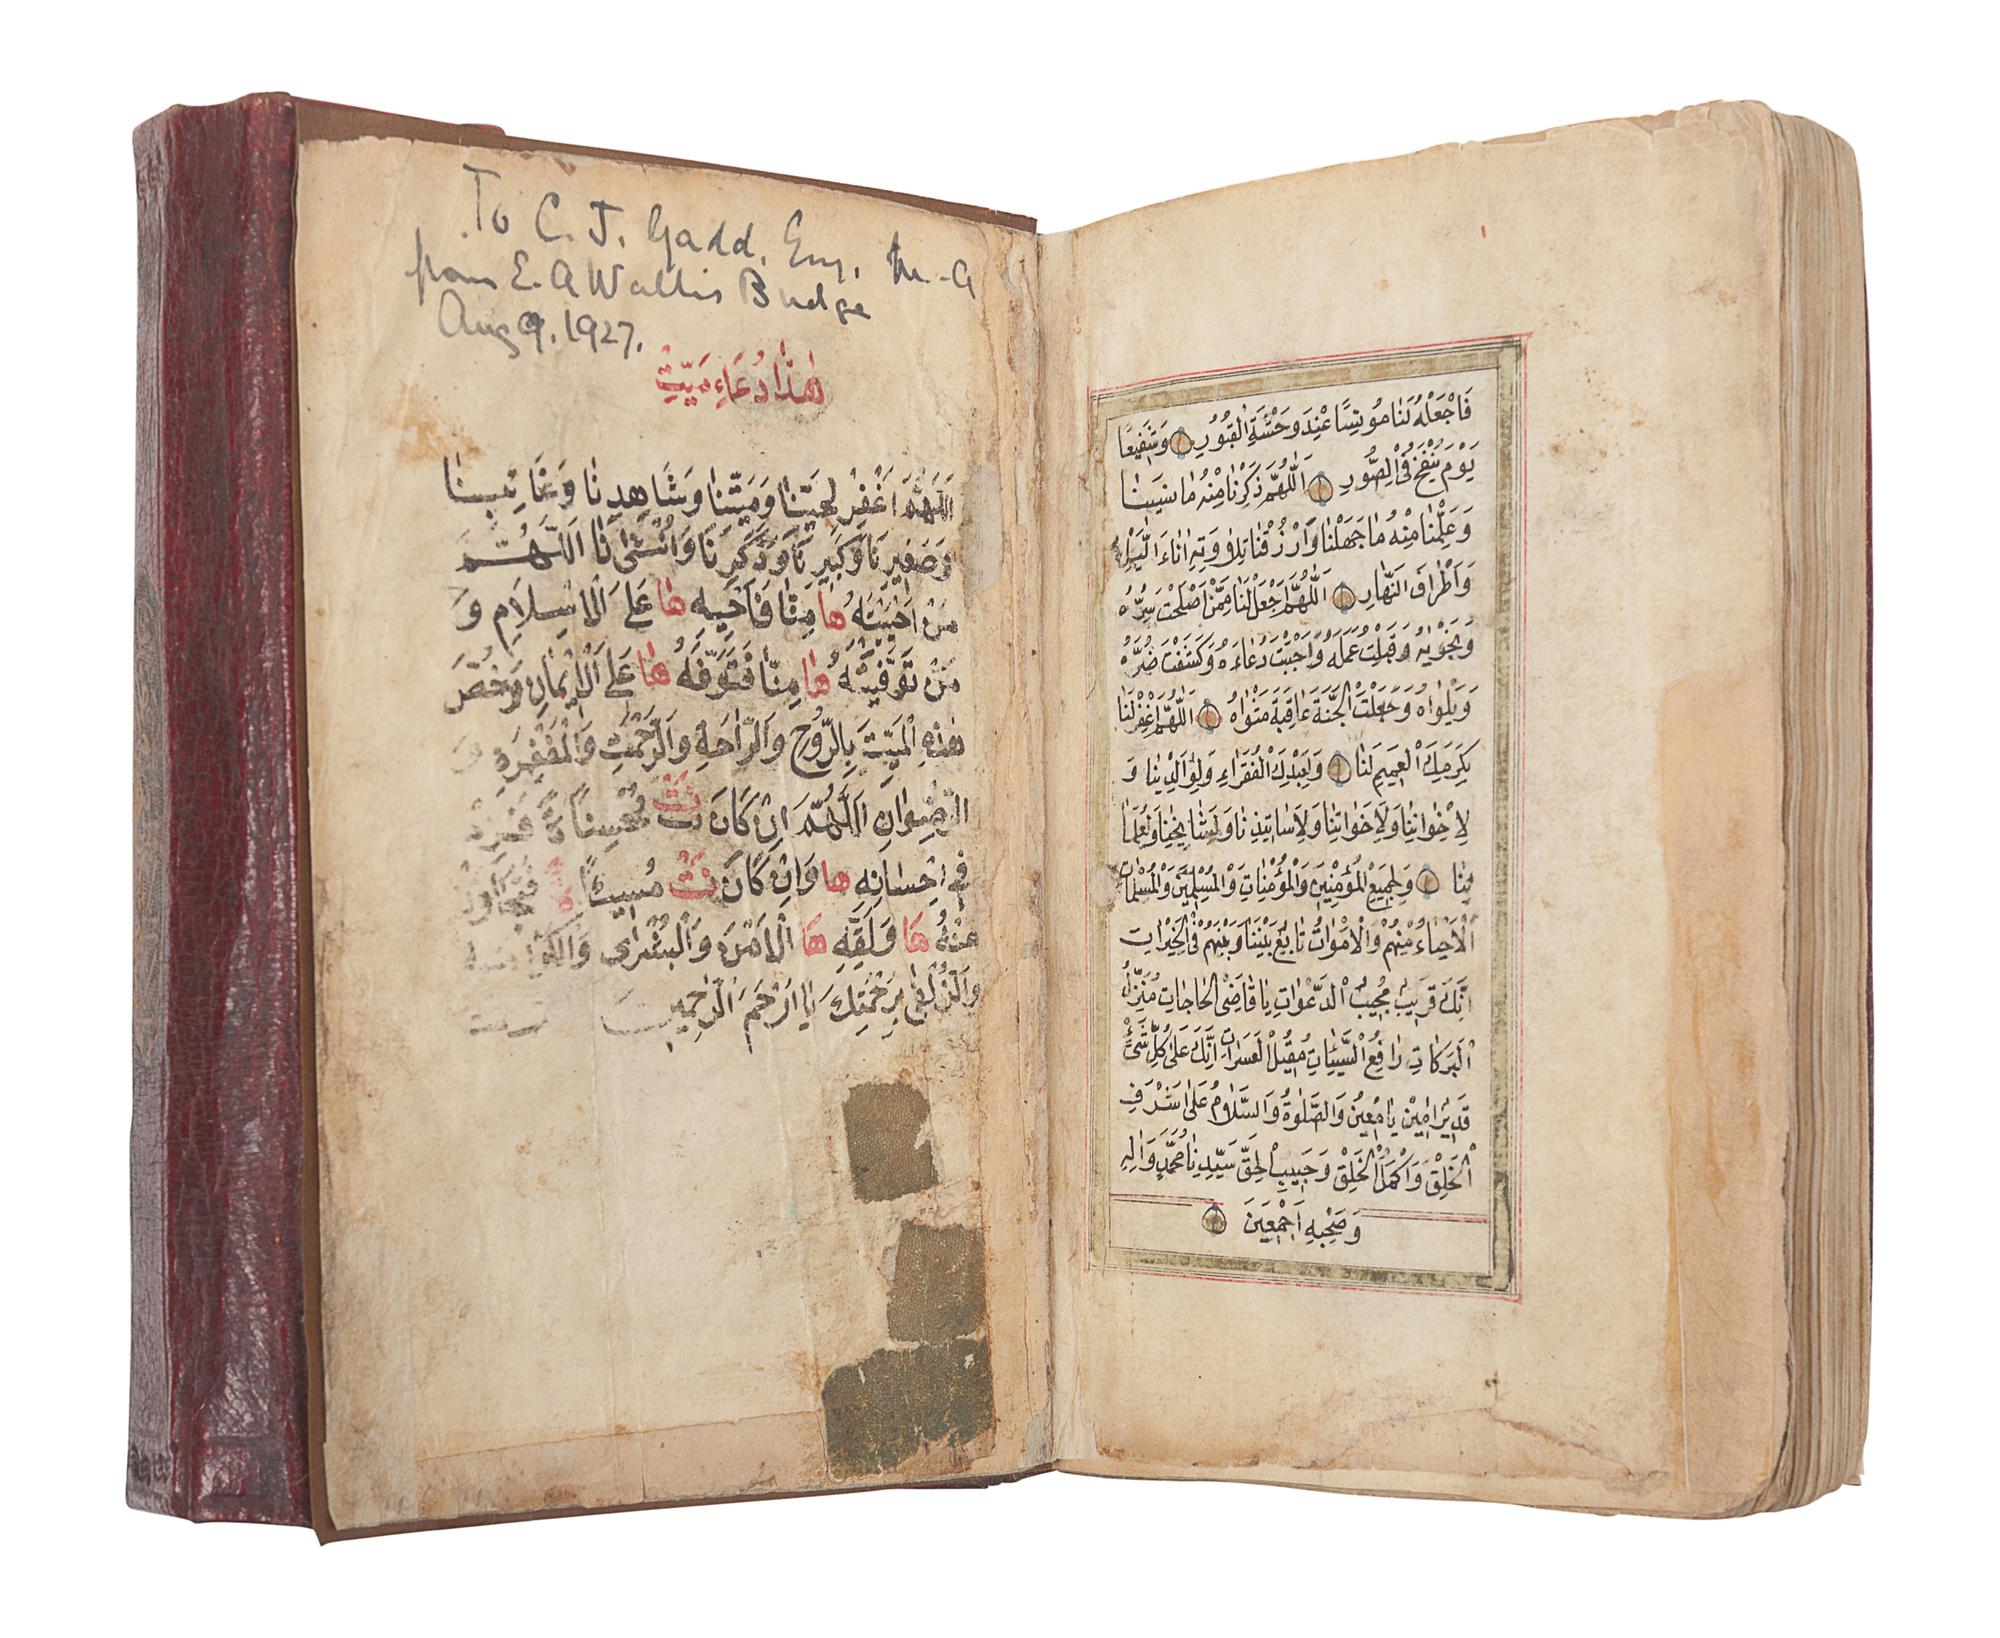 To C. J. Gadd, Esq. M-A
from E. A Wallis Budge
Aug 9. 1927.
هٰذَا دُعَاءِ مَيِّتِ
اَللّٰهُمَّ اغْفِرْ لِحَيِّنَا وَمَيِّتِنَا وَشَاهِدِنَا وَغَائِبِنَا
وَصَغِيرِنَا وَكَبِيرِنَا وَذَكَرِنَا وَاُنْثٰينَا اَللّٰهُمَّ
مَنْ اَحْيَيْتَهُ هَا مِنَّا فَاَحْيِهِ هَا عَلَى الْاِسْلَامِ وَ
مَنْ تَوَفَّيْتَهُ هَا مِنَّا فَتَوَفَّهُ هَا عَلَى الْاِيمَانِ وَخُصَّ
هٰذِهِ الْمَيِّتَ بِالرَّوْحِ وَالرَّاحَةِ وَالرَّحْمَةِ وَالْمَغْفِرَةِ وَ
الرِّضْوَانِ اَللّٰهُمَّ اِنْ كَانَ نَتْ مُحْسِنًا ةً فَزِدْ
فِي اِحْسَانِهِ هَا وَاِنْ كَانَ نَتْ مُسِيئًا ةً فَتَجَاوَزْ
عَنْهُ هَا وَلَقِّهِ هَا الْاَمْنَ وَالْبُشْرٰى وَالْكَرَامَةَ
وَالزُّلْفٰى بِرَحْمَتِكَ يَا اَرْحَمَ الرَّاحِمِينَ
فَاجْعَلْهُ لَنَا مُونِسًا عِنْدَ وَحْشَةِ الْقُبُورِ وَشَفِيعًا
يَوْمَ يُنْفَخُ فِي الصُّورِ اَللّٰهُمَّ ذَكِّرْنَا مِنْهُ مَا نَسِينَا
وَعَلِّمْنَا مِنْهُ مَا جَهِلْنَا وَارْزُقْنَا تِلَاوَتِهِ اٰنَاءَ الَّيْلِ
وَاَطْرَافَ النَّهَارِ اَللّٰهُمَّ اجْعَلْ لَنَا مِمَّنْ اَصْلَحْتَ سِرُّهُ
وَنَجْوٰيهُ وَقَبِلْتَ عَمَلَهُ وَاَجَبْتَ دُعَاءَهُ وَكَشَفْتَ ضُرَّهُ
وَبَلْوَاهُ وَجَعَلْتَ الْجَنَّةَ عَاقِبَةَ مَثْوَاهُ اَللّٰهُمَّ اغْفِرْ لَنَا
بِكَرَمِكَ الْعَمِيمِ لَنَا وَلِعَبْدِكَ الْفُقَرَاءِ وَلِوَالِدِينَا وَ
لِاِخْوَانِنَا وَلِاَخَوَاتِنَا وَلِاَسَاتِيذِنَا وَلِمَشَايِخِنَا وَلِعُلَمَا
ئِنَا وَلِجَمِيعِ الْمُؤْمِنِينَ وَالْمُؤْمِنَاتِ وَالْمُسْلِمِينَ وَالْمُسْلِمَاتِ
الْاَحْيَاءُ مِنْهُمْ وَالْاَمْوَاتُ تَابِعْ بَيْنَنَا وَبَيْنَهُمْ فِي الْخَيْرَاتِ
اِنَّكَ قَرِيبٌ مُجِيبُ الدَّعْوَاتِ يَا قَاضِيَ الْحَاجَاتِ مُنَزِّلُ
الْبَرَكَاتِ رَافِعُ السَّيِّئَاتِ مُقِيلُ الْعَسَرَاتِ اِنَّكَ عَلٰى كُلِّ شَيْءٍ
قَدِيرٌ اٰمِينْ يَا مُعِينُ وَالصَّلٰوةُ وَالسَّلَامُ عَلٰى اَشْرَفِ
الْخَلْقِ وَاَكْمَلِ الْخَلْقِ وَحَبِيبِ الْحَقِّ سَيِّدِنَا مُحَمَّدٍ وَاٰلِهِ
وَصَحْبِهِ اَجْمَعِينَ